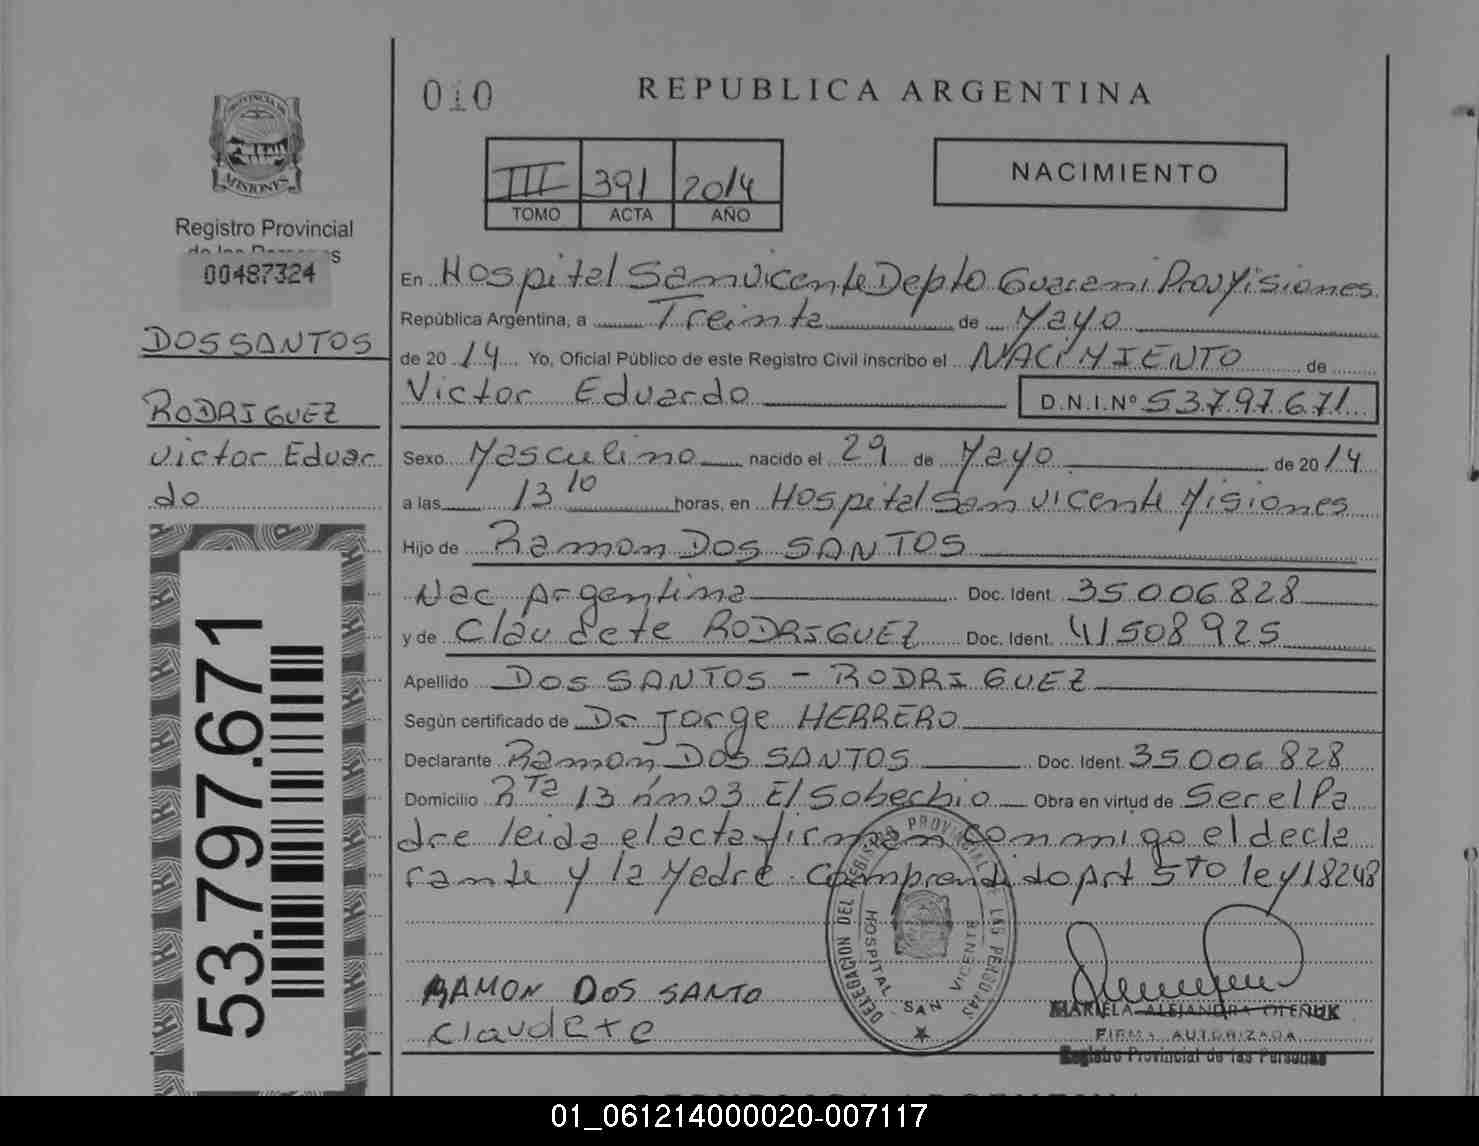 010
REPUBLICA ARGENTINA
PROVINCIA DE
MISIONES
III 391 2014
TOMO ACTA AÑO
NACIMIENTO
Registro Provincial
de las Personas
00487324
DOS SANTOS
RODRIGUEZ
Victor Eduar
do
53.797.671
En Hospital San Vicente Depto Guarani Prov Misiones
República Argentina, a Treinta de Mayo
de 2014 Yo, Oficial Público de este Registro Civil inscribo el NACIMIENTO de
Victor Eduardo D.N.I.Nº 53.797.671
Sexo Masculino nacido el 29 de Mayo de 2014
a las 13 10 horas, en Hospital San Vicente Misiones
Hijo de Ramon DOS SANTOS
Nac Argentina Doc. Ident. 35006828
y de Claudete RODRIGUEZ Doc. Ident. 41508925
Apellido DOS SANTOS - RODRIGUEZ
Según certificado de Dr Jorge HERRERO
Declarante Ramon DOS SANTOS Doc. Ident. 35006828
Domicilio Rta 13 03 El Soberbio Obra en virtud de Ser el Pa
dre leida el acta firman conmigo el decla
rante y la Madre. Comprendido Art 5to ley 18248
DELEGACION DEL REGISTRO PROVINCIAL DE LAS PERSONAS
HOSPITAL SAN VICENTE
RAMON DOS SANTO
Claudete
MARIELA ALEJANDRA OLEÑUK
FIRMA AUTORIZADA
Registro Provincial de las Personas
REPUBLICA ARGENTINA
01_061214000020-007117